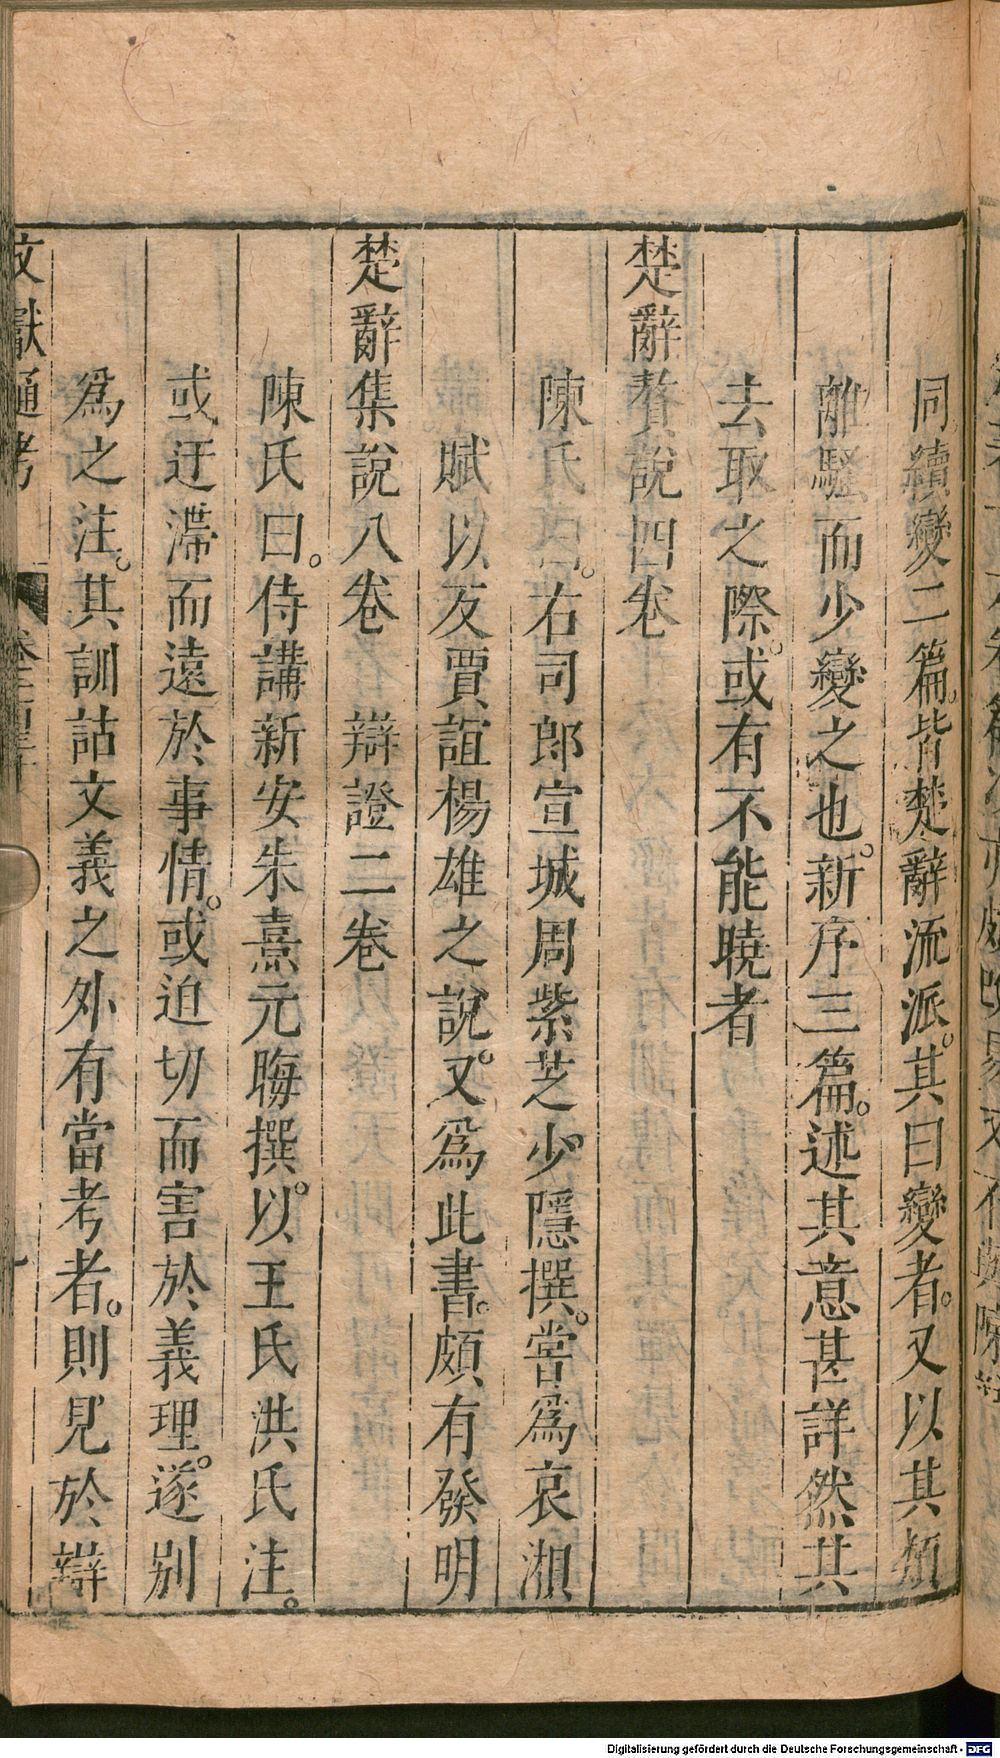 同續變二篇。皆楚辭流派。其曰變者。又以其類
離騷而少變之也。新序三篇。述其意甚詳然其
去取之際。或有不能曉者
楚辭贅說四卷
陳氏曰。右司郎宣城周紫芝少隱撰。嘗爲哀湘
賦以反賈誼楊雄之說。又爲此書。頗有發明
楚辭集說八卷 辯證二卷
陳氏曰。侍講新安朱熹元晦撰。以王氏洪氏注。
或迂滯而遠於事情。或迫切而害於義理。遂別
爲之注。其訓詁文義之外有當考者。則見於辯
文獻通考
Digitalisierung gefördert durch die Deutsche Forschungsgemeinschaft - DFG